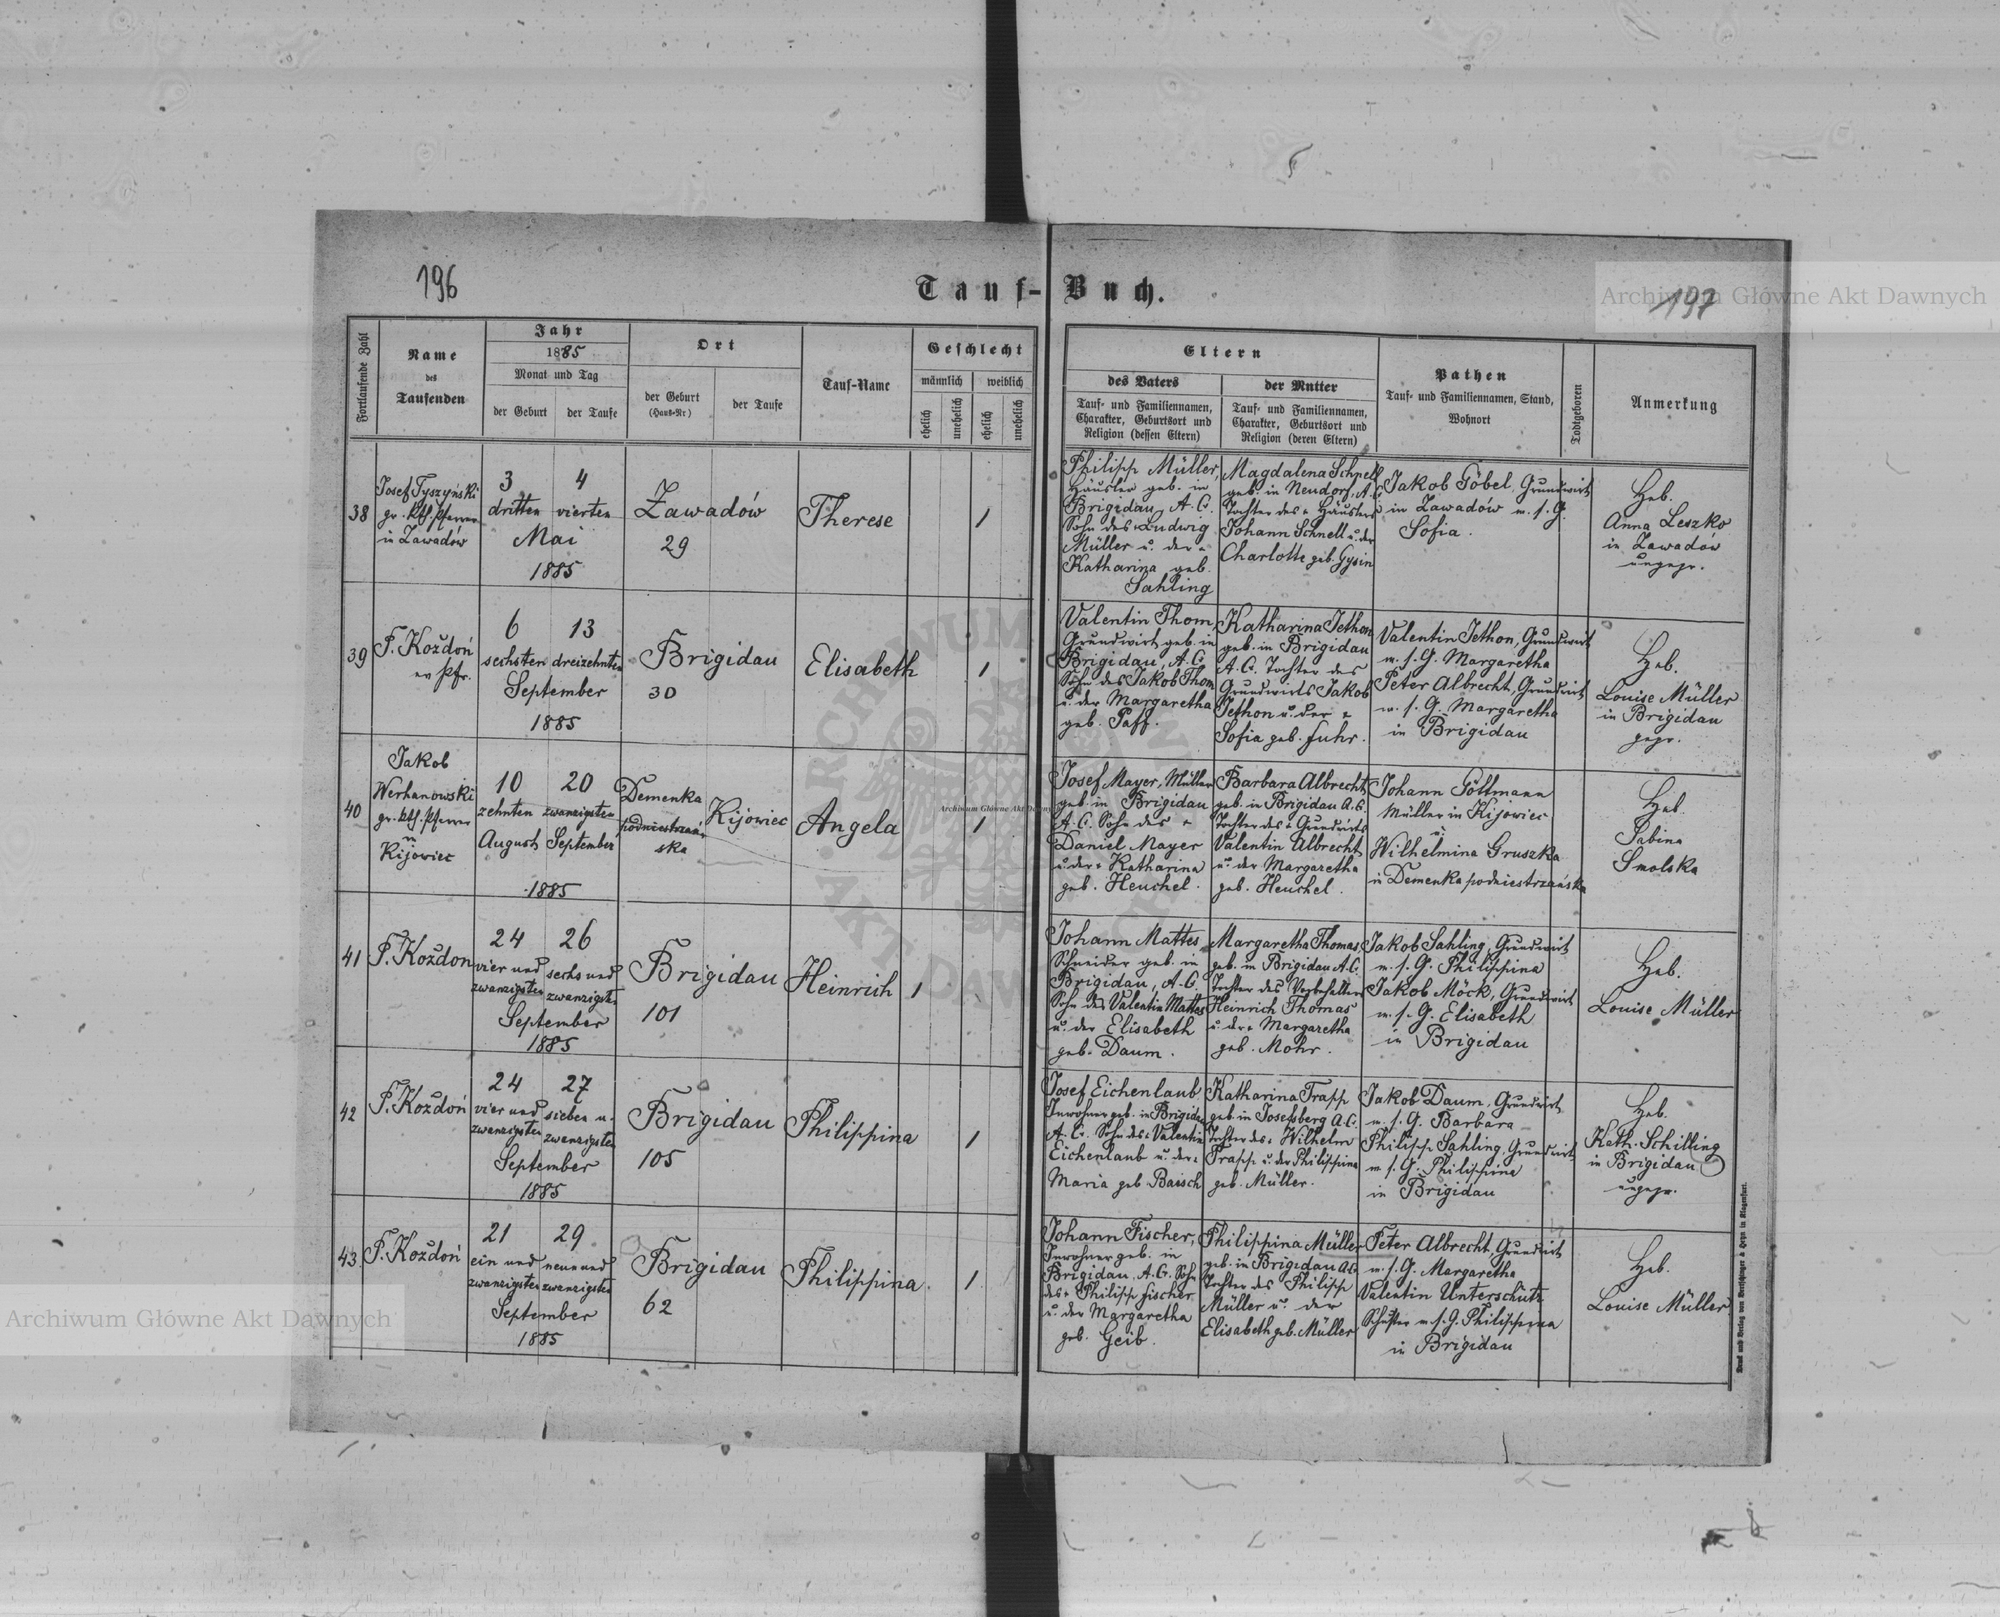 196
Tauf-Buch.
197
Archiwum Główne Akt Dawnych
Fortlaufende Zahl
Name
des
Taufenden
Jahr
1885
Monat und Tag
der Geburt
der Taufe
Ort
der Geburt
(Haus-Nr)
der Taufe
Tauf-Name
Geschlecht
männlich
weiblich
ehelich
unehelich
ehelich
unehelich
Eltern
des Vaters
Tauf- und Familiennamen,
Charakter, Geburtsort und
Religion (dessen Eltern)
der Mutter
Tauf- und Familiennamen,
Charakter, Geburtsort und
Religion (deren Eltern)
Pathen
Tauf- und Familiennamen, Stand,
Wohnort
Todtgeboren
Anmerkung
38
Josef Tyszyński
gr. kth. Pfarrer
in Zawadów
3
dritten
4
vierten
Mai
1885
Zawadów
29
Therese
1
Philipp Müller,
Häusler geb. in
Brigidau, A. C.
Sohn des Ludwig
Müller u. der
Katharina geb.
Sahling
Magdalena Schnell
geb. in Neudorf, A. C.
Tochter des Häuslers
Johann Schnell u. der
Charlotte geb. Gysin
Jakob Göbel, Grundwirt
in Zawadów m. s. G.
Sofia.
Heb.
Anna Leszko
in Zawadów
ungepr.
39
P. Koždoń
ev Pfr.
6
sechsten
13
dreizehnten
September
1885
Brigidau
30
Elisabeth
1
Valentin Thom
Grundwirt geb. in
Brigidau, A. C.
Sohn des Jakob Thom
u. der Margaretha
geb. Paff.
Katharina Jethon
geb. in Brigidau
A. C. Tochter des
Grundwirts Jakob
Jethon u. der
Sofia geb. Fuhr.
Valentin Jethon, Grundwirt
m. s. G. Margaretha
Peter Albrecht, Grundwirt
m. s. G. Margaretha
in Brigidau
Heb.
Louise Müller
in Brigidau
gepr.
40
Jakob
Werhanowski
gr. kth. Pfarrer
in
Kijowiec
10
zehnten
August
20
zwanzigsten
September
1885
Demenka
podniestrzań-
ska
Kijowiec
Angela
1
Josef Mayer, Müller
geb. in Brigidau
A. C. Sohn des
Daniel Mayer
u. der Katharina
geb. Heuchel.
Barbara Albrecht
geb. in Brigidau A. C.
Tochter des Grundwirts
Valentin Albrecht
u. der Margaretha
geb. Heuchel.
Johann Göttmann
Müller in Kijowiec
u.
Wilhelmina Gruszka
in Demenka podniestrzańska
Heb.
Sabina
Smolska
41
P. Koždon
24
vier und
zwanzigsten
26
sechs und
zwanzigsten
September
1885
Brigidau
101
Heinrich
1
Johann Mattes
Schneider geb. in
Brigidau, A. C.
Sohn des Valentin Mattes
u. der Elisabeth
geb. Daum.
Margaretha Thomas
geb. in Brigidau A. C.
Tochter des Vorbehalters
Heinrich Thomas
u. der Margaretha
geb. Mohr.
Jakob Sahling, Grundwirt
m. s. G. Philippina
Jakob Möck, Grundwirt
m. s. G. Elisabeth
in Brigidau
Heb.
Louise Müller
42
P. Koždoń
24
vier und
zwanzigsten
27
sieben u.
zwanzigsten
September
1885
Brigidau
105
Philippina
1
Josef Eichenlaub
Inwohner geb. in Brigidau
A. C. Sohn des Valentin
Eichenlaub u. der
Maria geb Baisch
Katharina Trapp
geb. in Josefsberg A. C.
Tochter des Wilhelm
Trapp u. der Philippina
geb. Müller.
Jakob Daum, Grundwirt
m. s. G. Barbara
Philipp Sahling, Grundwirt
m. s. G. Philippina
in Brigidau
Heb.
Kath. Schilling
in Brigidau
ungepr.
43
P. Koždoń
21
ein und
zwanzigsten
29
neun und
zwanzigsten
September
1885
Brigidau
62
Philippina.
1
Johann Fischer,
Inwohner geb. in
Brigidau, A. C. Sohn
des Philipp Fischer
u. der Margaretha
geb. Geib.
Philippina Müller
geb. in Brigidau A. C.
Tochter des Philipp
Müller u. der
Elisabeth geb. Müller
Peter Albrecht, Grundwirt
m. s. G. Margaretha
Valentin Unterschütz
Schuster m. s. G. Philippina
in Brigidau
Heb.
Louise Müller
Archiwum Główne Akt Dawnych
Archiwum Główne Akt Dawnych